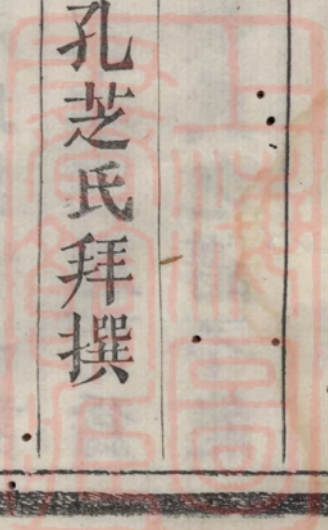 孔芝氏拜撰